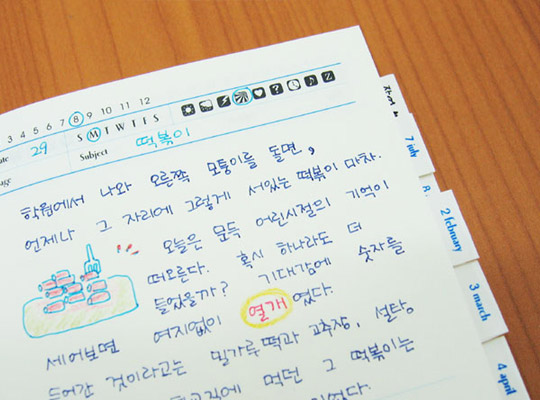 3 4 5 6 7 8 9 10 11 12
ate 29 S M T W T F S
age Subject 떡볶이
학원에서 나와 오른쪽 모퉁이를 돌면,
언제나 그 자리에 그렇게 서있는 떡볶이 마차.
오늘은 문득 어린시절의 기억이
떠오른다. 혹시 하나라도 더
들었을까? 기대감에 숫자를
세어보면 여지없이 열개였다.
들어간 것이라고는 밀가루떡과 고추장, 설탕
먹던 그 떡볶이는
7 july
8
2 february
3 march
4 april